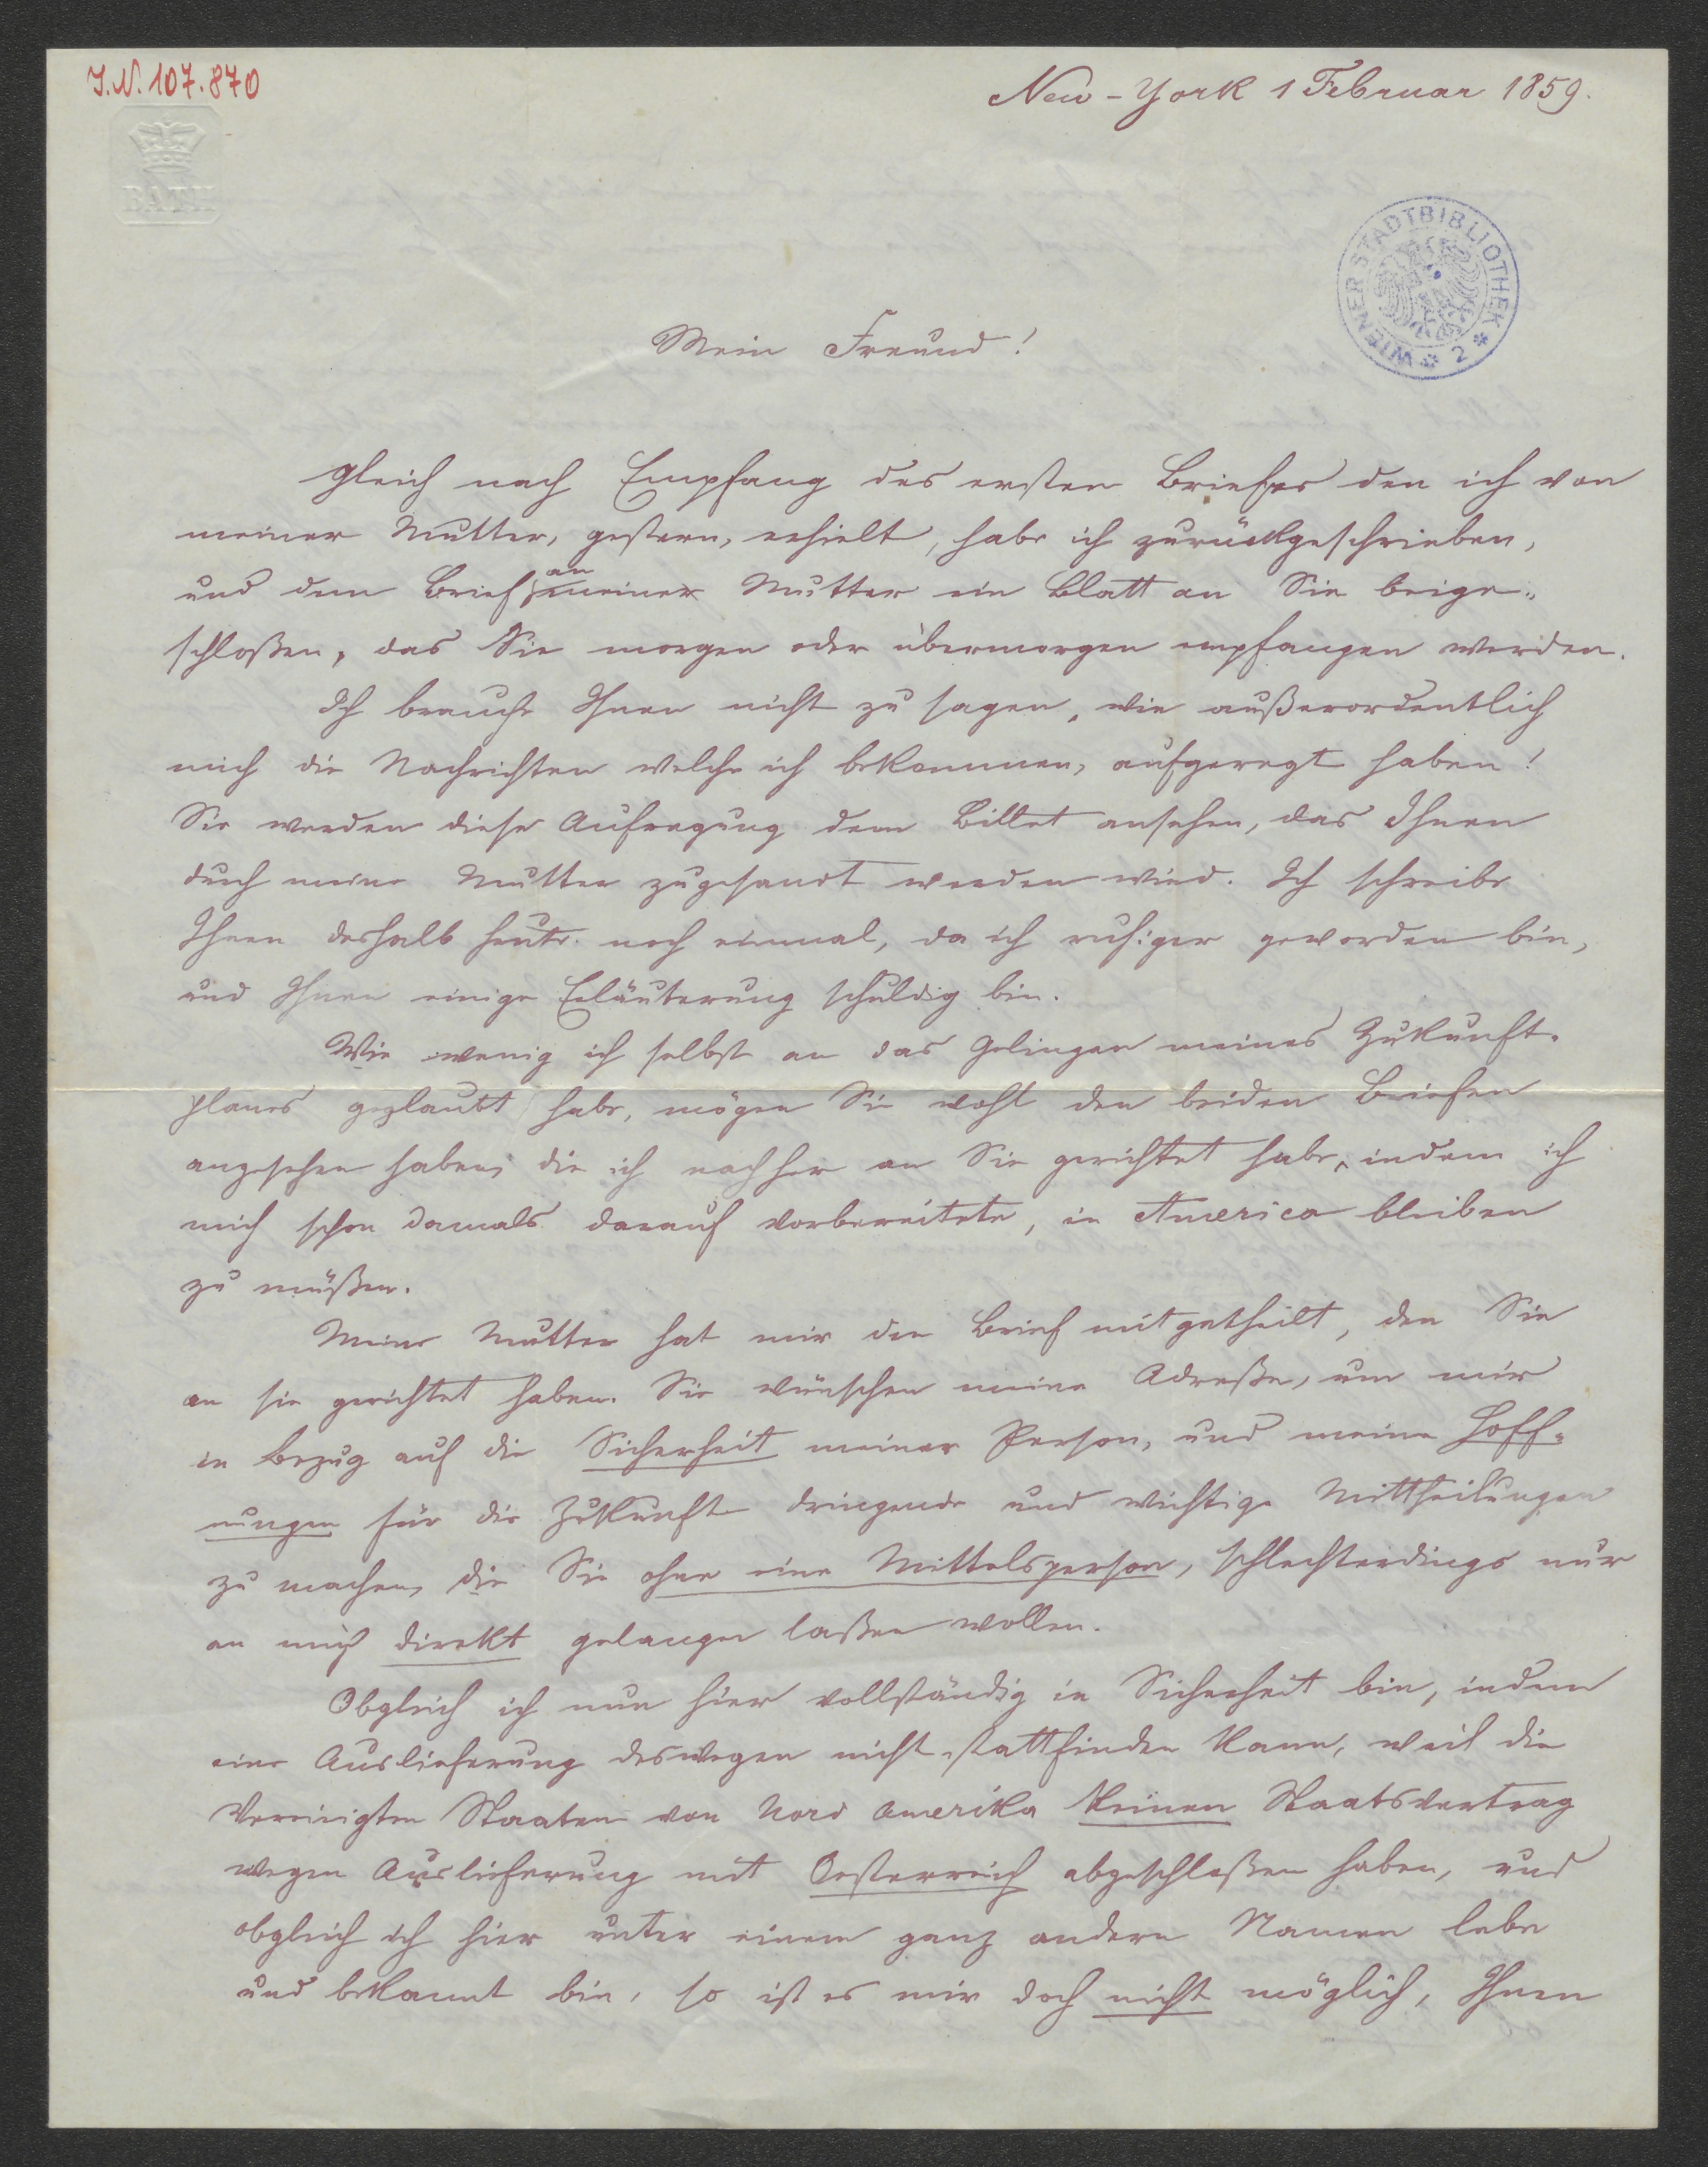 I.N. 107.870
New-York 1 Februar 1859.
BATH
WIENER STADTBIBLIOTHEK * 2 *
Mein Freund!
gleich nach Empfang des ersten Briefes den ich von
meiner Mutter, gestern, erhielt, habe ich zurückgeschrieben,
und dem Brief an meiner Mutter ein Blatt an Sie beige„
schloßen, das Sie morgen oder übermorgen empfangen werden.
Ich brauche Ihnen nicht zu sagen, wie außerordentlich
mich die Nachrichten welche ich bekommen, aufgeregt haben!
Sie werden diese Aufregung dem Billet ansehen, das Ihnen
durch meine Mutter zugesandt werden wird. Ich schreibe
Ihnen deshalb heute noch einmal, da ich ruhiger geworden bin,
und Ihnen einige Erläuterung schuldig bin.
Wie wenig ich selbst an das Gelingen meines Zukunft-
planes geglaubt habe, mögen Sie wohl den beiden Briefen
angesehen haben, die ich nachher an Sie gerichtet habe, indem ich
mich schon damals darauf vorbereitete, in America bleiben
zu müßen.
Meine Mutter hat mir den Brief mitgetheilt, den Sie
an sie gerichtet haben. Sie wünschen meine Adreße, um mir
in Bezug auf die Sicherheit meiner Person, und meine Hoff-
nungen für die Zukunft dringende und wichtige Mittheilungen
zu machen, die Sie ohne eine Mittelsperson, schlechterdings nur
an mich direkt gelangen laßen wollen.
Obgleich ich nun hier vollständig in Sicherheit bin, indem
eine Auslieferung deswegen nicht stattfinden kann, weil die
Vereinigten Staaten von Nord Amerika keinen Staatsvertrag
wegen Auslieferung mit Oesterreich abgeschloßen haben, und
obgleich ich hier unter einem ganz andern Namen lebe
und bekannt bin, so ist es mir doch nicht möglich, Ihnen